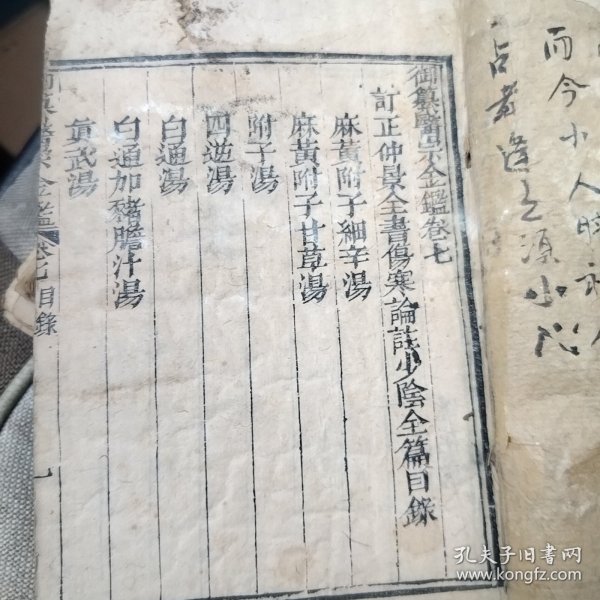 御纂醫宗金鑑卷七
訂正仲景全書傷寒論註少陰全篇目錄
麻黃附子細辛湯
麻黃附子甘草湯
附子湯
四逆湯
白通湯
白通加豬膽汁湯
真武湯
御纂醫宗金鑑 卷七目錄 一
而今小人
占者
源小心
孔夫子旧书网
www.kongfz.com